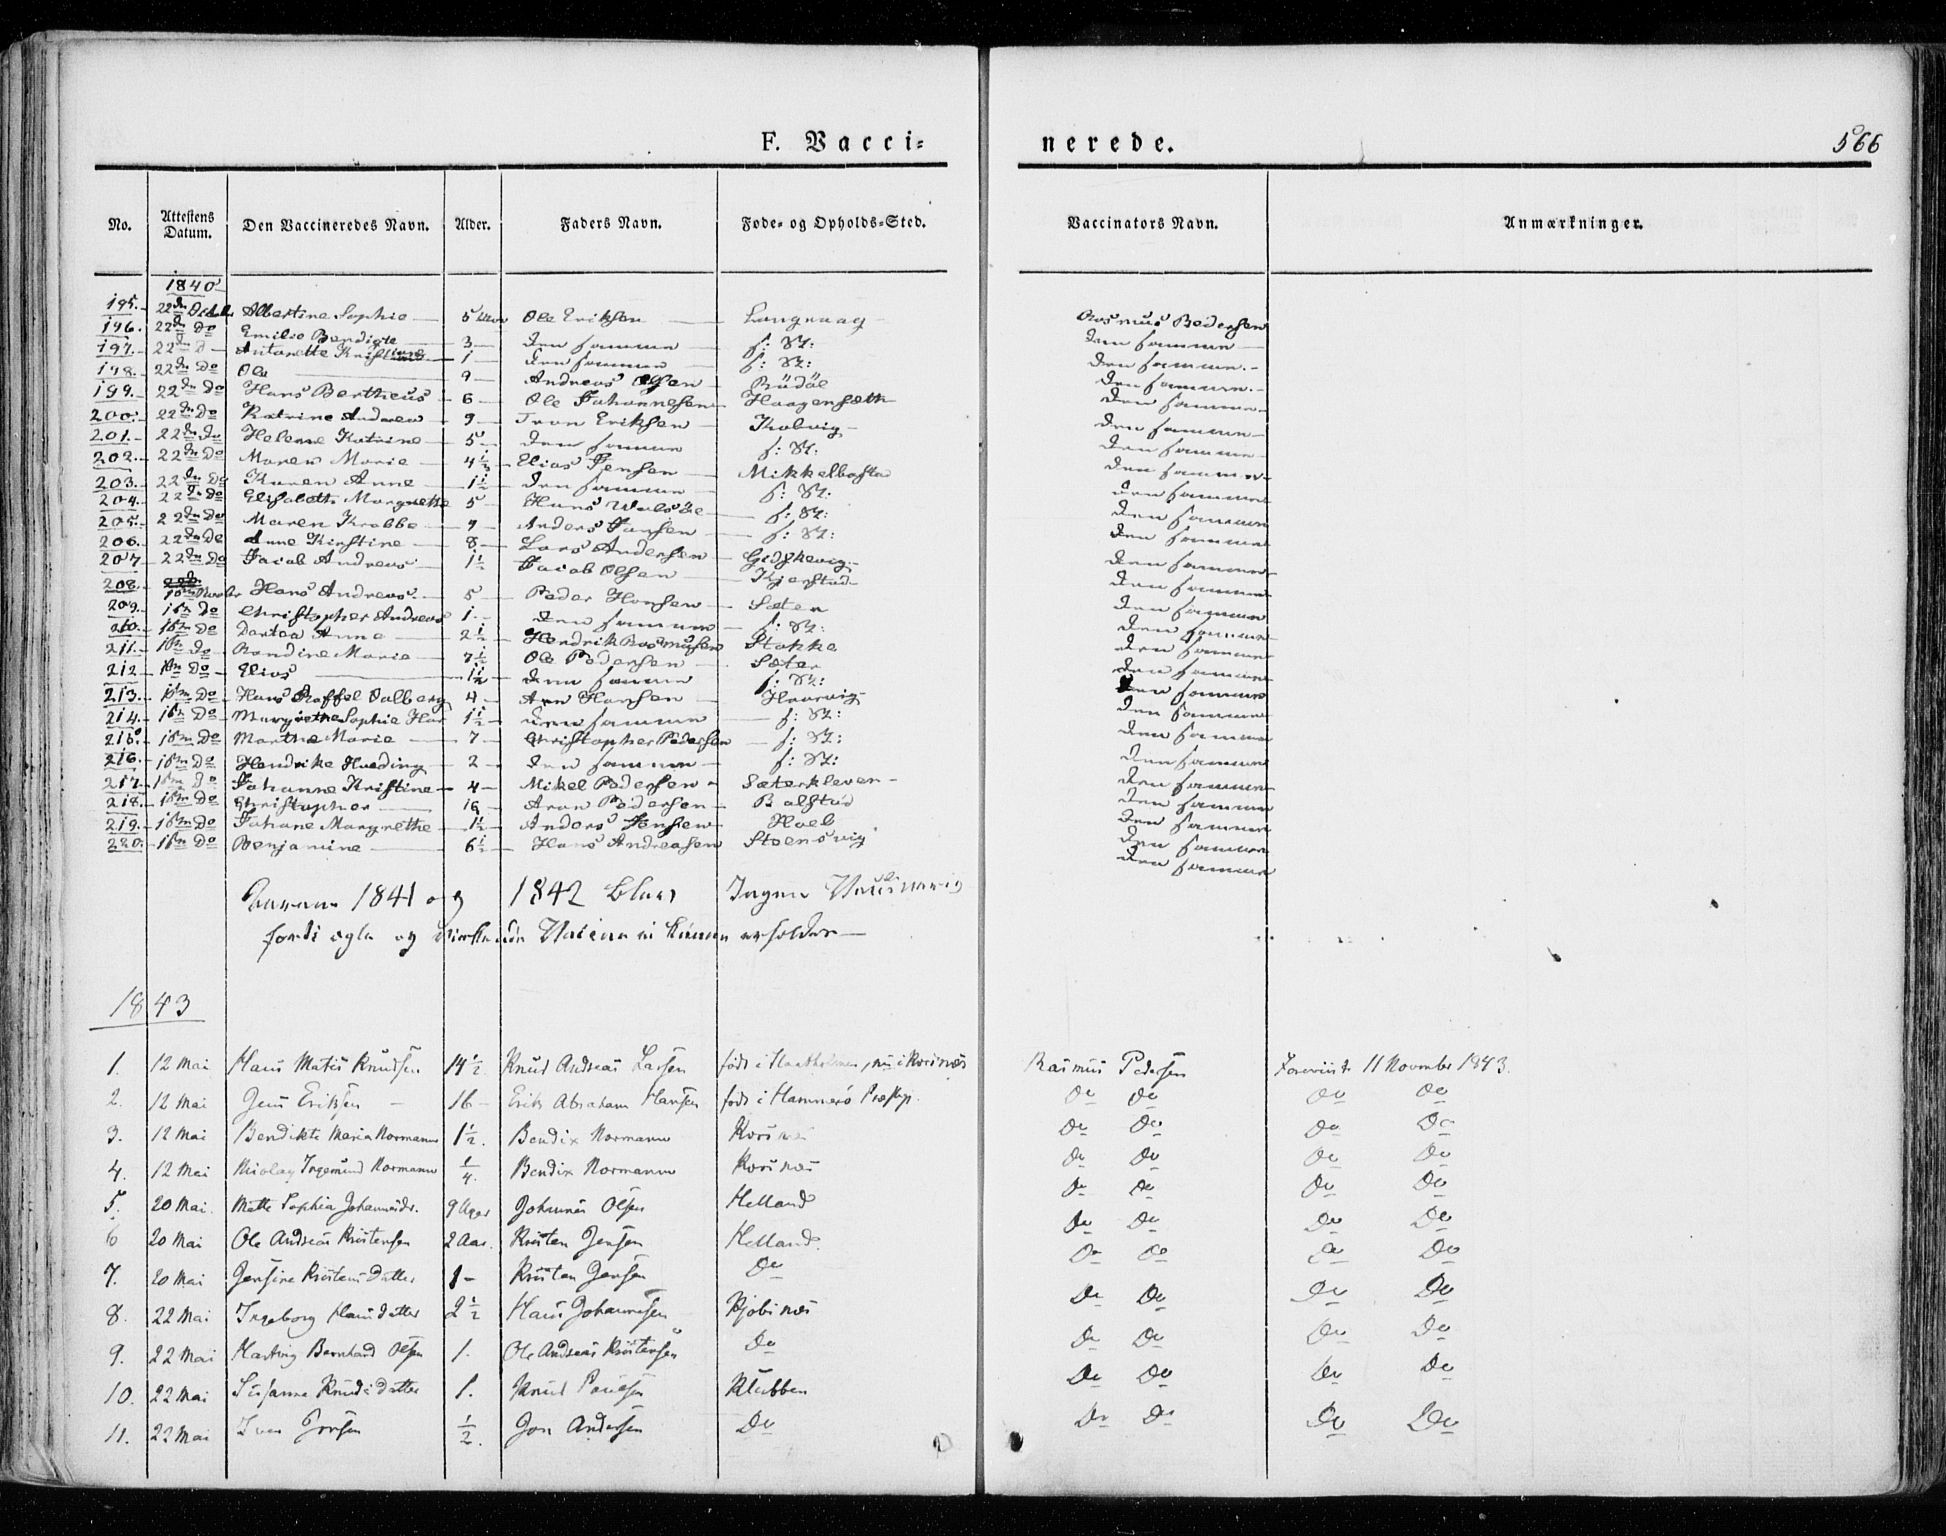 F. Vacci= nerede. 566
No. Attestens Datum. Den Vaccineredes Navn. Alder. Faders Navn. Føde- og Opholds-Sted. Vaccinators Navn. Anmærkninger.
1840
195. 22dn Albertine Sophie 5 Ole Eriksen Langvaag Rasmus Pedersen
196. 22dn Do Emilie Bendigte 3 den samme s: St: den samme
197. 22dn D Antonette Kristiane 1 den samme s: St: den samme
198. 22dn Do Ole 9 Andreas Olsen den samme
199. 22dn Do Hans Bertheus 6 Ole Johannesen Haagensæth den samme
200. 22dn Do Katrine Andrea 9 Eriksen den samme
201. 22dn Do Helene Katrine 5 den samme s: St: den samme
202. 22dn Do Maren Marie 4½ Elias Jensen Mikkelbostad den samme
203. 22dn Do Karen Anne 1½ den samme s: St: den samme
204. 22dn Do Elisabeth Margrethe 5 Hans s: St: den samme
205. 22dn Do Maren Krabbe 7 Anders Jansen s: St: den samme
206. 22dn Do Anne Kirstine 8 Lars Andersen den samme
207. 22dn Do Jacob Andreas 1½ Jacob Olsen Kjerstad den samme
208. 16de Hans Andreas 5 Peder Hansen Sæter den samme
209. 16de Do Christopher Andreas 1 den samme s: St: den samme
210. 16de Do Dortea Anne 2½ Hendrik Rasmusen Stokke den samme
211. 16de Do Marie 7½ Ole Pedersen Sæter den samme
212. 16de Do Elias 1½ den samme s: St: den samme
213. 16de Do Hans Dalberg 4 Hansen den samme
214. 16de Do Margrethe Sophie 1½ den samme s: St: den samme
215. 16de Do Marthe Marie 7 Christopher Pedersen s: St: den samme
216. 16de Do Hendrike 2 den samme s: St: den samme
217. 16de Do Johanne Kristine 4 Mikel Pedersen Sæterkleven den samme
218. 16de Do Christopher 10 Aron Pedersen Balstad den samme
219. 16de Do Johane Margrethe 1½ Anders Jensen den samme
220. 16de Do Benjamine 6½ Hans Andreasen Steensvig den samme
1841 og 1842 blev Ingen
og
1843
1. 12 Mai Hans Matis Knudsen 14½ Knud Andreas Larsen født i nu i Korsnæs Rasmus Pedersen 11 November 1843.
2. 12 Mai Jens Eriksen 16 Erik Abraham Hansen født i Hammerø Do Do Do Do
3. 12 Mai Bendikte Maria Normann 1½. Bendix Normann Korsnæs Do Do Do Do
4. 12 Mai Nicolay Ingemund Normann ¼. Bendix Normann Korsnæs Do Do Do Do
5. 20 Mai. Mette Sophia Johannesdr. 9 Uger Johannes Olsen Helland Do Do Do Do
6 20 Mai Ole Andreas Kristensen 2 Aar. Kristen Jensen Helland. Do Do Do Do
7. 20 Mai Jensine Kristens Datter 1 Kristen Jensen Do Do Do Do Do
8. 22 Mai Ingeborg Hansdatter 2½ Hans Johannesen Kjøbsnæs Do Do Do Do
9. 22 Mai Hartvig Bernhard Olsen 1. Ole Andreas Kristensen Do Do Do Do Do
10. 22 Mai Susanne Knudsdatter 1. Knud Klubben Do Do Do Do
11. 22 Mai Iver Jonsen ½. Jon Andersen Do Do Do Do Do